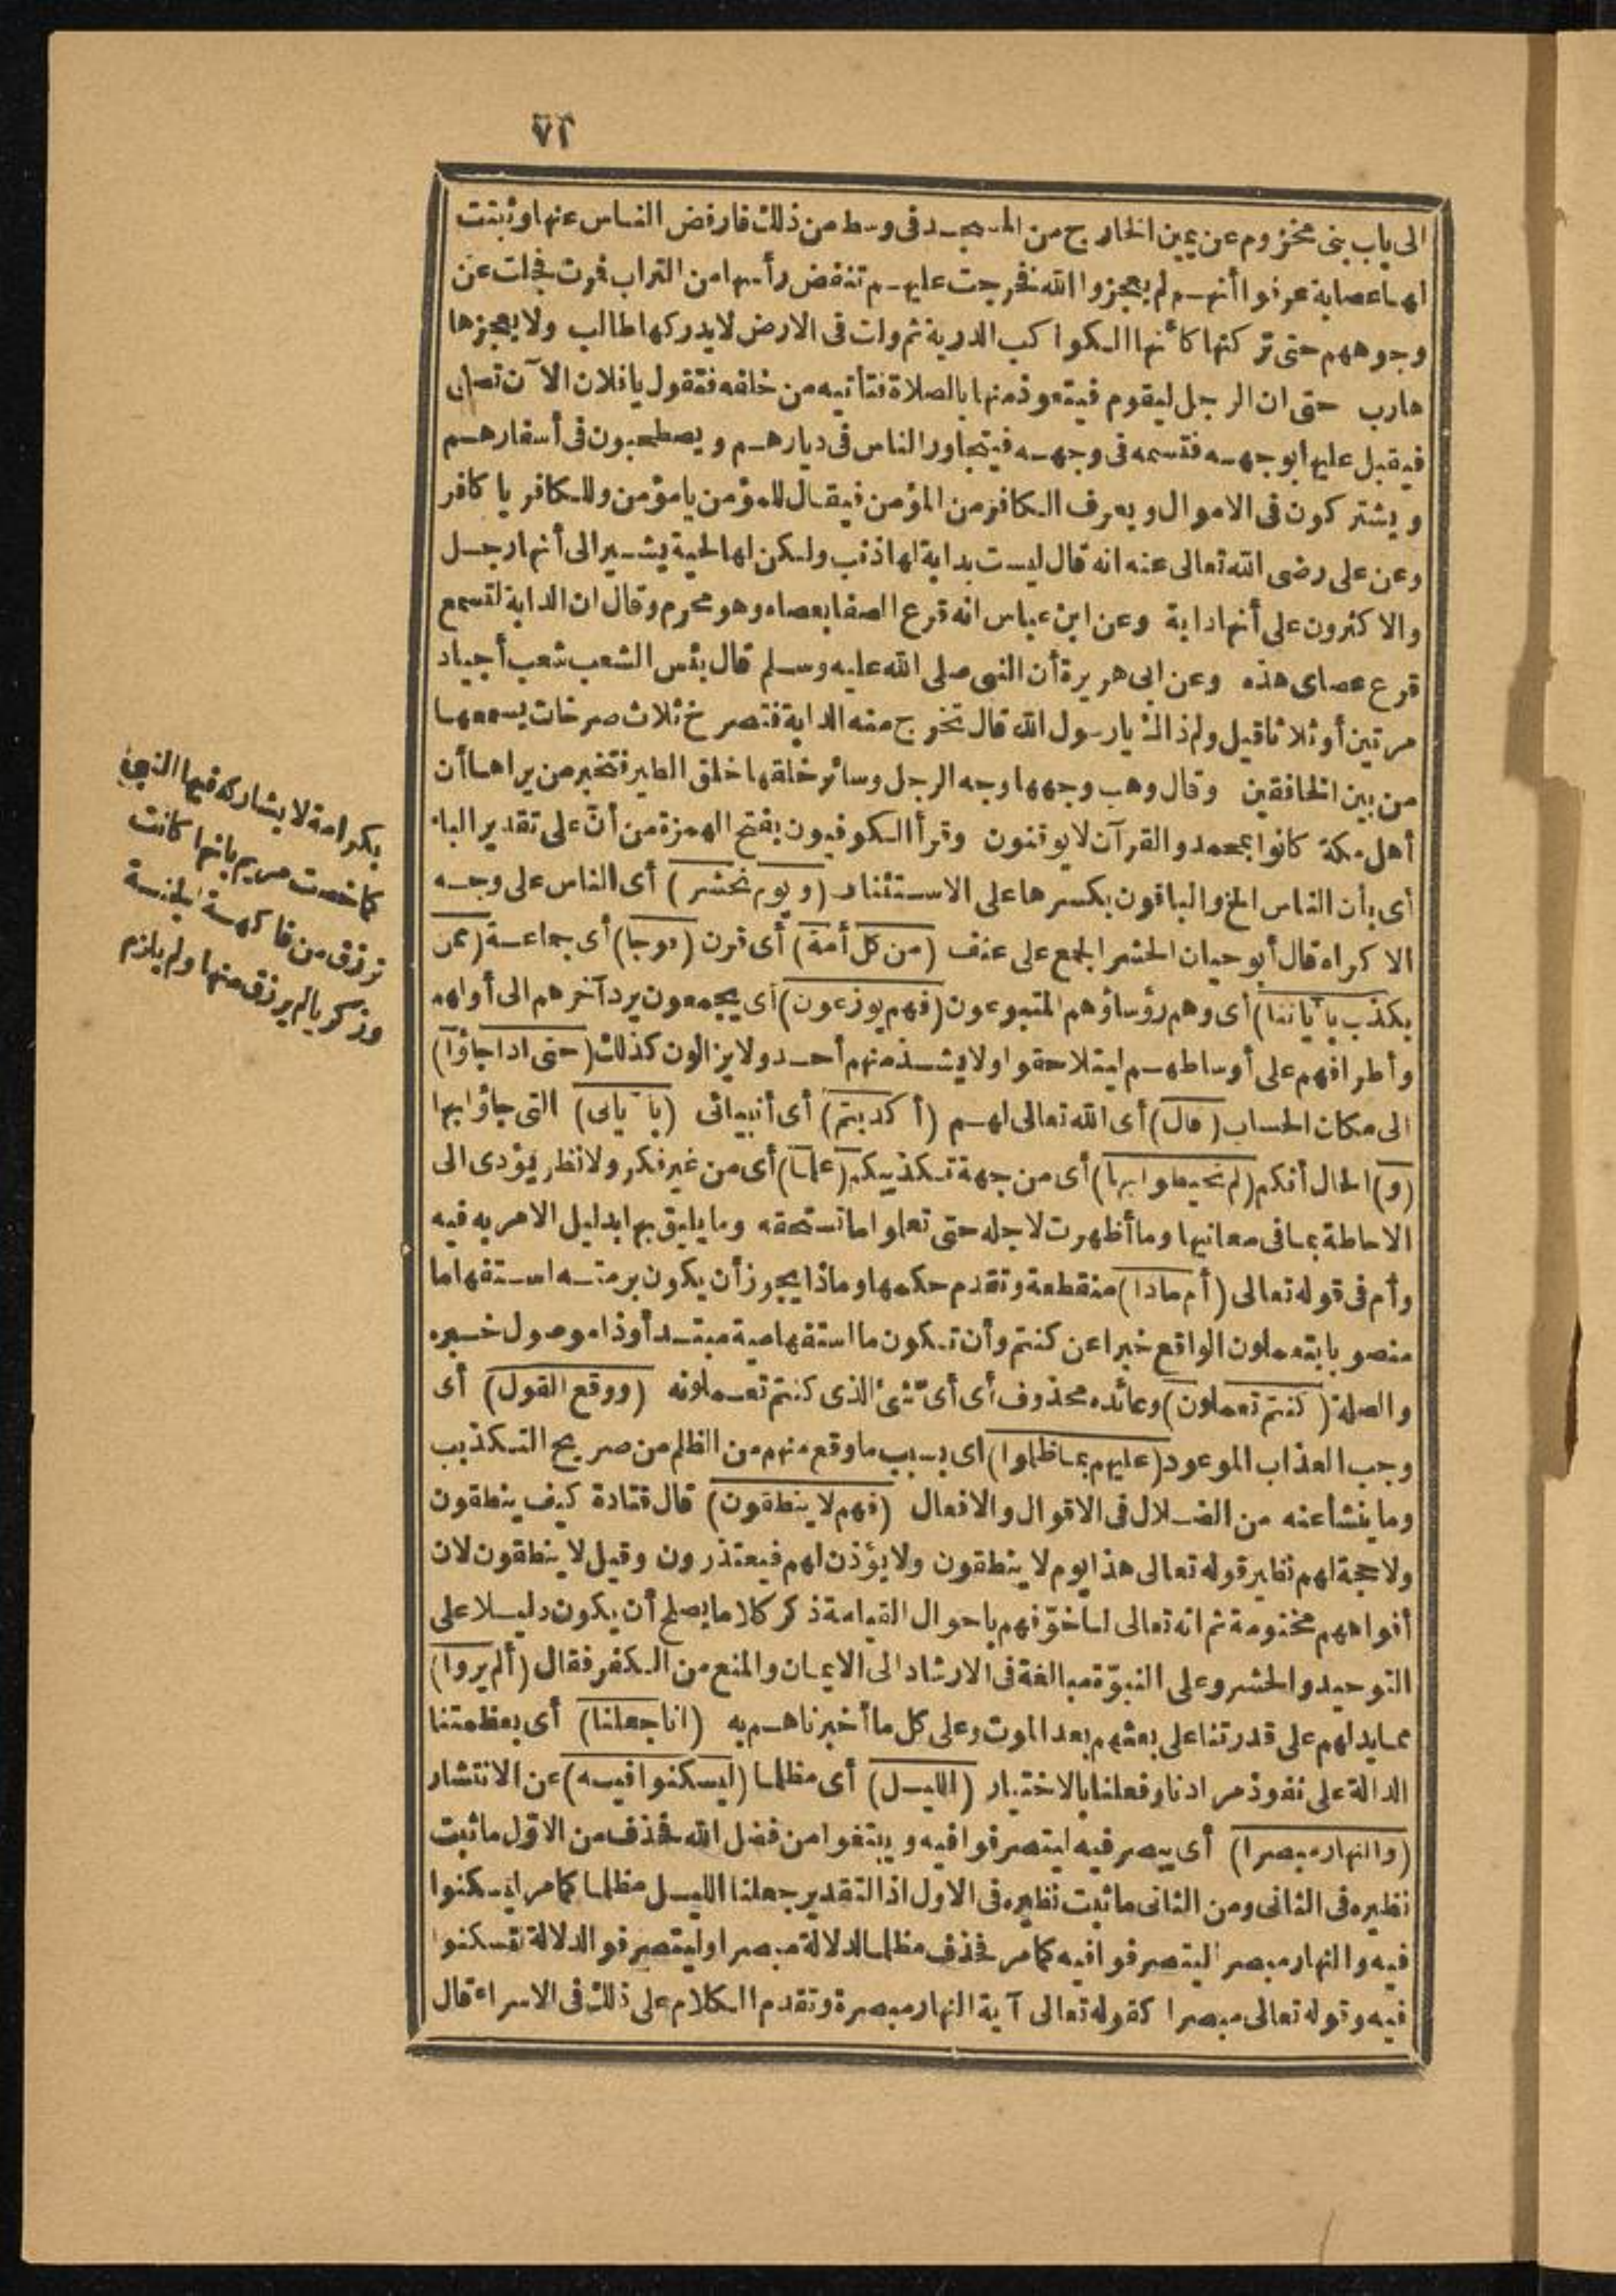 ٧٢
الى باب بنى مخزوم عن يمين الخارج من المسجد فى وسط من ذلك فارفض الناس عنها وثبتت
لها عصابة عرفوا أنهم لم يعجزوا الله فخرجت عليهم تنفض رأسها من التراب فمرت فجلت عن
وجوههم حتى تركتها كأنها الكواكب الدرية ثم ولت فى الارض لا يدركها طالب ولا يعجزها
هارب حتى ان الرجل ليقوم فيتعوذ منها بالصلاة فتأتيه من خلفه فتقول يا فلان الآن تصلى
فيقبل عليها بوجهه فتسمه فى وجهه فيتجاور الناس فى ديارهم ويصطحبون فى أسفارهم
ويشتركون فى الاموال ويعرف الكافر من المؤمن فيقال للمؤمن يا مؤمن وللكافر يا كافر
وعن على رضى الله تعالى عنه انه قال ليست بدابة لها ذنب ولكن لها لحية يشير الى أنها رجل
والاكثرون على أنها دابة وعن ابن عباس انه قرع الصفا بعصاه وهو محرم وقال ان الدابة لتسمع
قرع عصاى هذه وعن ابى هريرة أن النبى صلى الله عليه وسلم قال بئس الشعب شعب أجياد
مرتين أو ثلاثا قيل ولم ذاك يا رسول الله قال تخرج منه الدابة فتصرخ ثلاث صرخات يسمعها
من بين الخافقين وقال وهب وجهها وجه الرجل وسائر خلقها خلق الطير فتخبر من يراها أن
أهل مكة كانوا بمحمد والقرآن لا يوقنون وقرأ الكوفيون بفتح الهمزة من أنّ على تقدير الباء
أى بأن الناس الخ والباقون بكسرها على الاستئناف (ويوم نحشر) أى الناس على وجه
الاكراه قال أبو حيان الحشر الجمع على عنف (من كل أمة) أى قرن (فوجا) أى جماعة (ممن
يكذب بآياتنا) أى وهم رؤساؤهم المتبوعون (فهم يوزعون) أى يجمعون يرد آخرهم الى أولهم
وأطرافهم على أوساطهم ليتلاحقوا ولا يشذ منهم أحد ولا يزالون كذلك (حتى اذا جاؤا)
الى مكان الحساب (قال) أى الله تعالى لهم (أكذبتم) أى أنبيائى (بآياتى) التى جاؤا بها
(و) الحال أنكم (لم تحيطوا بها) أى من جهة تكذيبكم (علما) أى من غير فكر ولا نظر يؤدى الى
الاحاطة بما فى معانيها وما أظهرت لاجله حتى تعلموا ما تستحقه وما يليق بها بدليل الامر به فيه
وأم فى قوله تعالى (أم ماذا) منقطعة وتقدم حكمها وماذا يجوز أن يكون برمته استفهاما
منصوبا بتعملون الواقع خبرا عن كنتم وأن تكون ما استفهامية مبتدأ وذا موصول خبره
والصلة (كنتم تعملون) وعائده محذوف أى أىّ شئ الذى كنتم تعملونه (ووقع القول) أى
وجب العذاب الموعود (عليهم بما ظلموا) أى بسبب ما وقع منهم من الظلم من صريح التكذيب
وما ينشأ عنه من الضلال فى الاقوال والافعال (فهم لا ينطقون) قال قتادة كيف ينطقون
ولا حجة لهم نظير قوله تعالى هذا يوم لا ينطقون ولا يؤذن لهم فيعتذرون وقيل لا ينطقون لان
أفواههم مختومة ثم انه تعالى لما خوّفهم باحوال القيامة ذكر كلاما يصلح أن يكون دليلا على
التوحيد والحشر وعلى النبوّة مبالغة فى الارشاد الى الايمان والمنع من الكفر فقال (ألم يروا)
مما يدلهم على قدرتنا على بعثهم بعد الموت وعلى كل ما أخبرناهم به (انا جعلنا) أى بعظمتنا
الدالة على نفوذ مرادنا وفعلنا بالاختيار (الليل) أى مظلما (ليسكنوا فيه) عن الانتشار
(والنهار مبصرا) أى يبصر فيه ليتصرفوا فيه ويبتغوا من فضل الله فحذف من الاوّل ما ثبت
نظيره فى الثانى ومن الثانى ما ثبت نظيره فى الاول اذ التقدير جعلنا الليل مظلما كما مر ليسكنوا
فيه والنهار مبصرا ليتصرفوا فيه كما مر فحذف مظلما لدلالة مبصرا وليتصرفوا لدلالة لتسكنوا
فيه وقوله تعالى مبصرا كقوله تعالى آية النهار مبصرة وتقدم الكلام على ذلك فى الاسراء قال
بكرامة لا يشاركه فيها النبىّ
كما خصت مريم بانها كانت
ترزق من فاكهة الجنة
وزكريا لم يرزق منها ولم يلزم